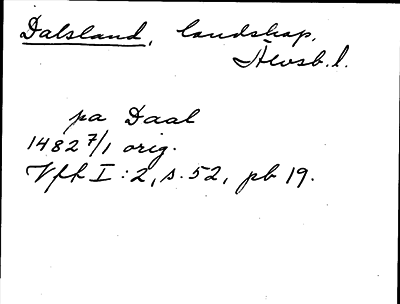 Dalsland, landskap.
Älvsb. l.
pa Daal
1482 7/1 orig.
Vfh I: 2, s. 52, pb 19.